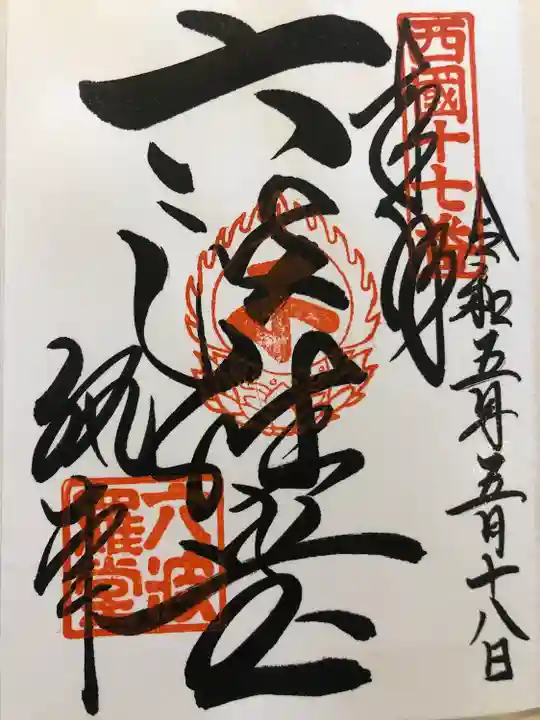 西國十七番
奉拝
令和五年五月十八日
六波羅堂
執事
六波羅堂